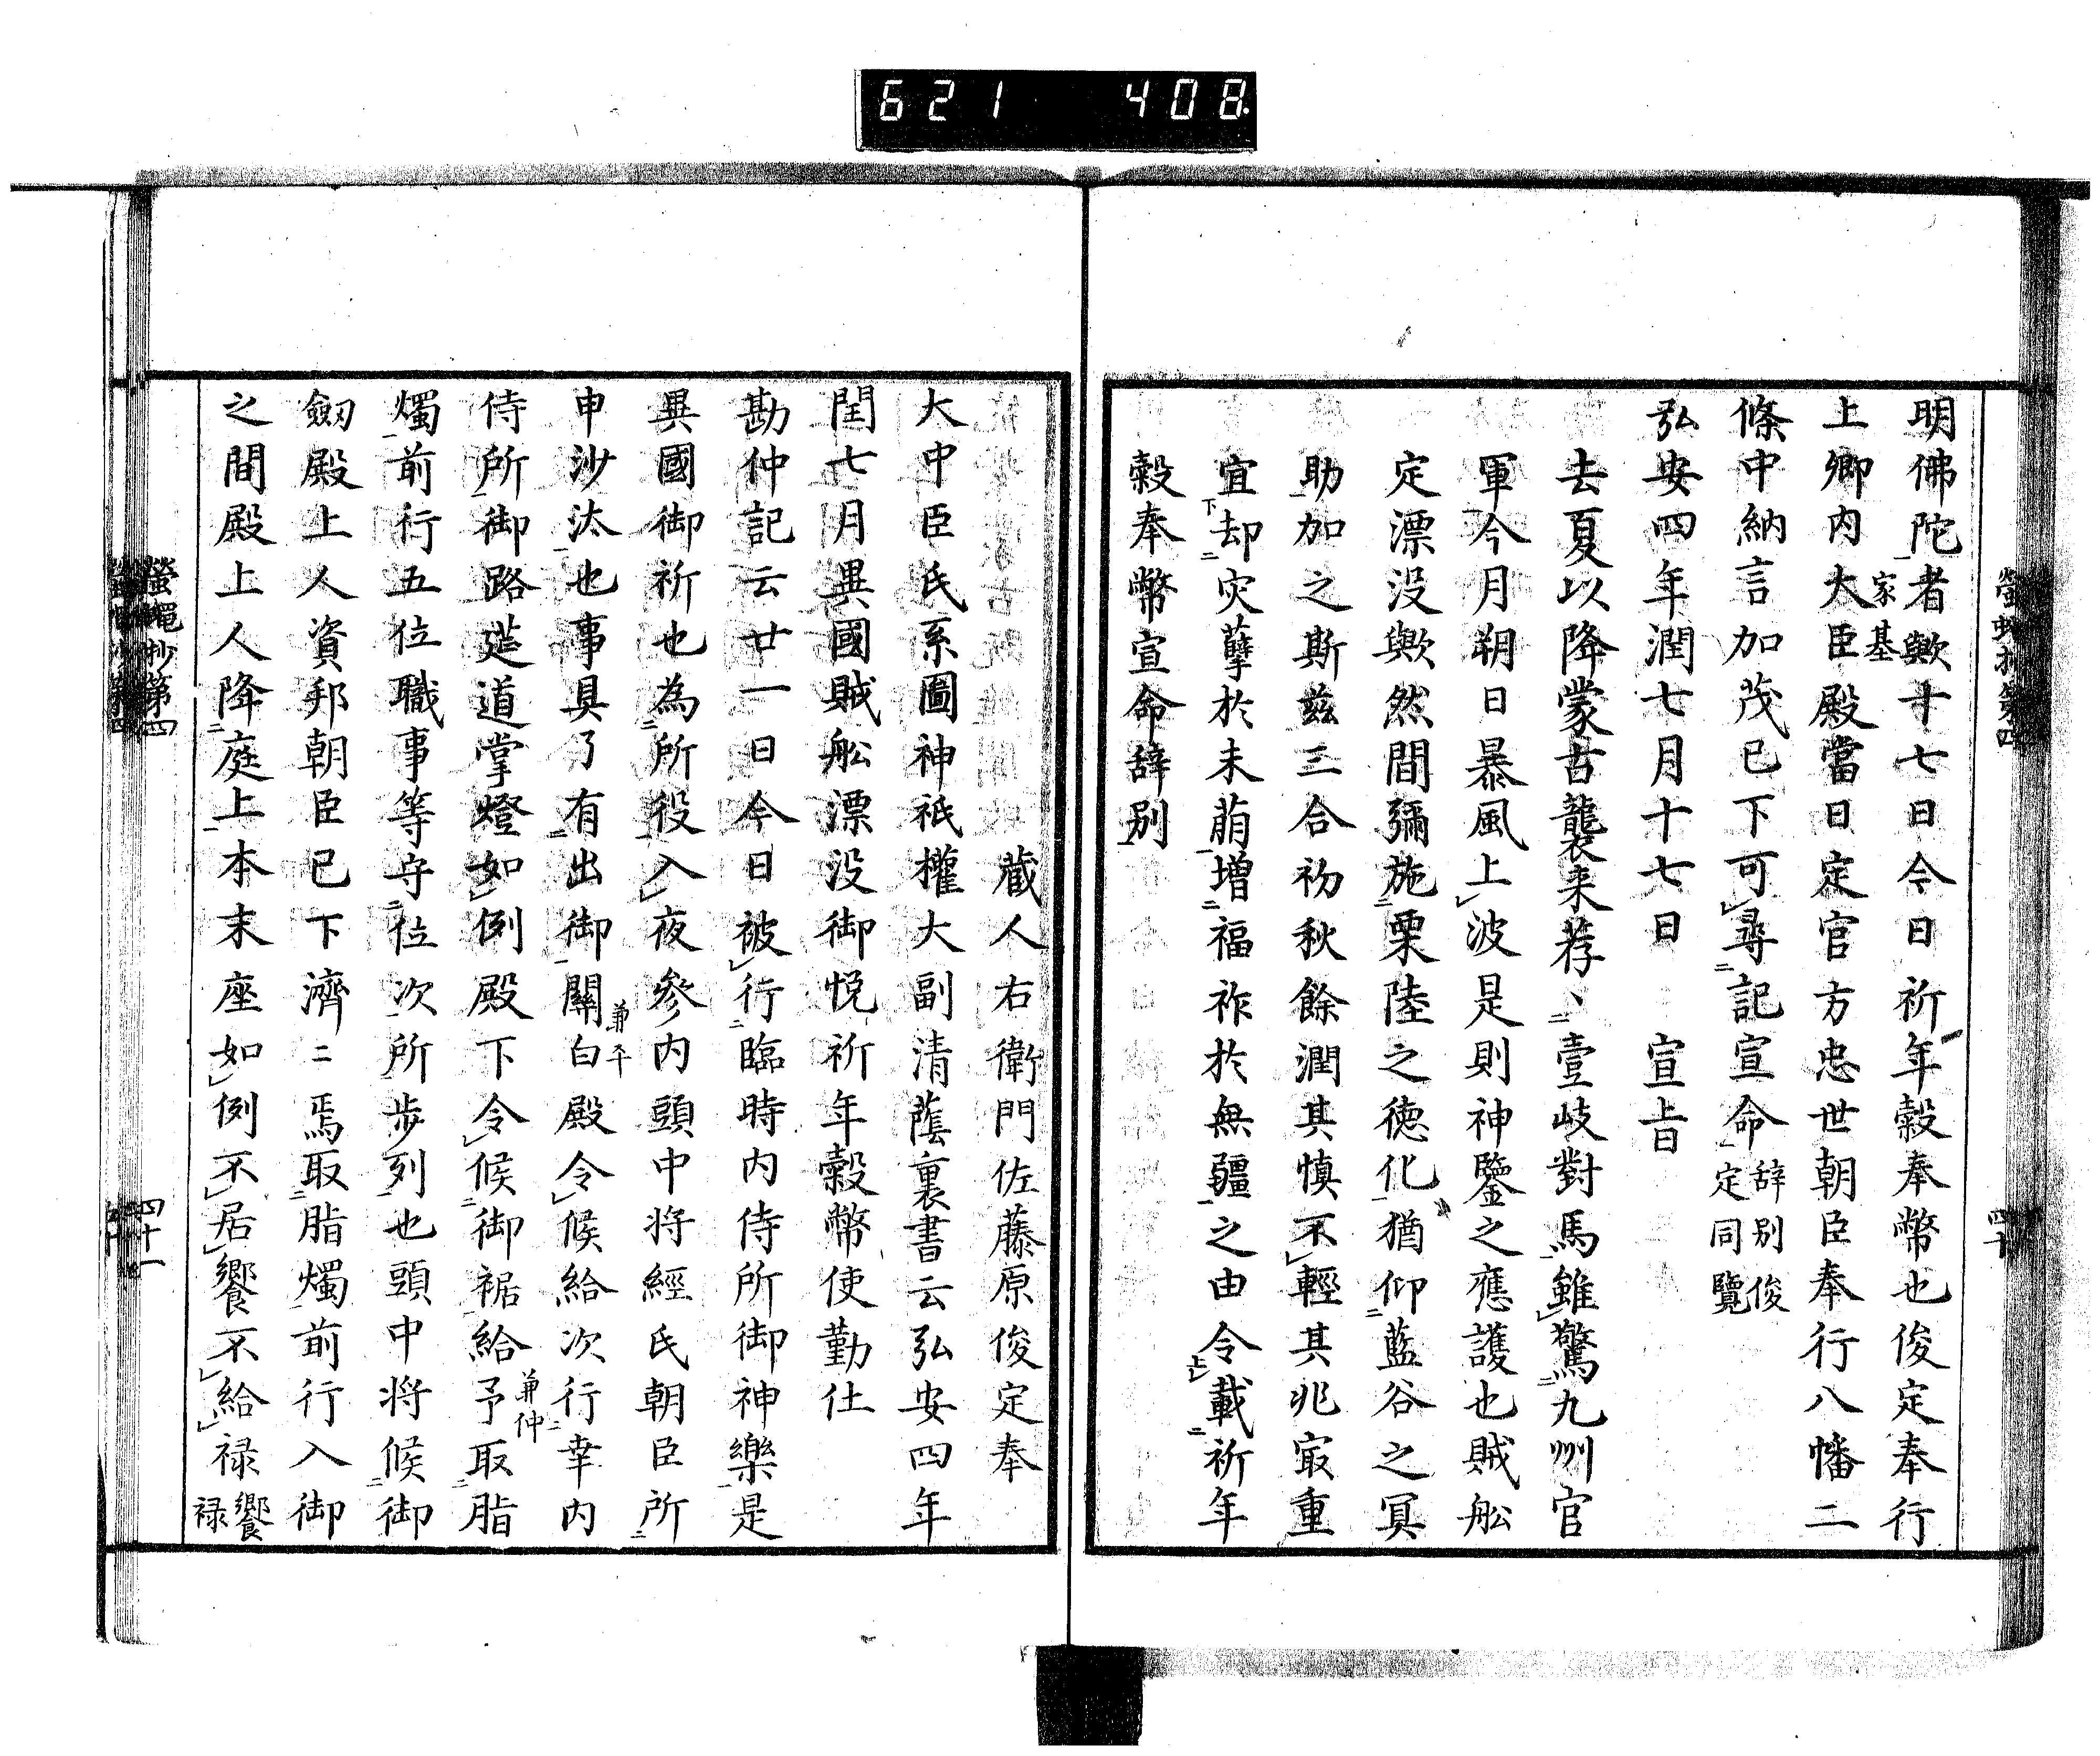 621 408
明佛陀者歟十七日今日祈年穀奉幣也俊定奉行
上卿内大臣家基殿當日定官方忠世朝臣奉行八幡二
條中納言加茂已下可尋記宣命辞別俊定同覽
弘安四年潤七月十七日　宣旨
去夏以降蒙古襲来荐、壹岐對馬雖驚九州官
軍今月朔日暴風上波是則神鑒之應護也賊舩
定漂没歟然間彌施栗陸之徳化猶仰藍谷之冥
助加之斯兹三合初秋餘潤其慎不輕其兆㝡重
宜却灾孽於未萠増福祚於無疆之由令載祈年
穀奉幣宣命辞別
藏人右衛門佐藤原俊定奉
大中臣氏系圖神祇權大副清蔭裏書云弘安四年
閏七月異國賊舩漂没御悦祈年穀幣使勤仕
勘仲記云廿一日今日被行臨時内侍所御神樂是
異國御祈也為所役入夜參内頭中将經氏朝臣所
申沙汰也事具了有出御關白兼平殿令候給次行幸内
侍所御路莚道掌燈如例殿下令候御裾給予兼仲取脂
燭前行五位職事等守位次所歩列也頭中将候御
劔殿上人資邦朝臣已下濟二焉取脂燭前行入御
之間殿上人降庭上本末座如例不居饗不給禄饗禄
螢蠅抄第四
四十一